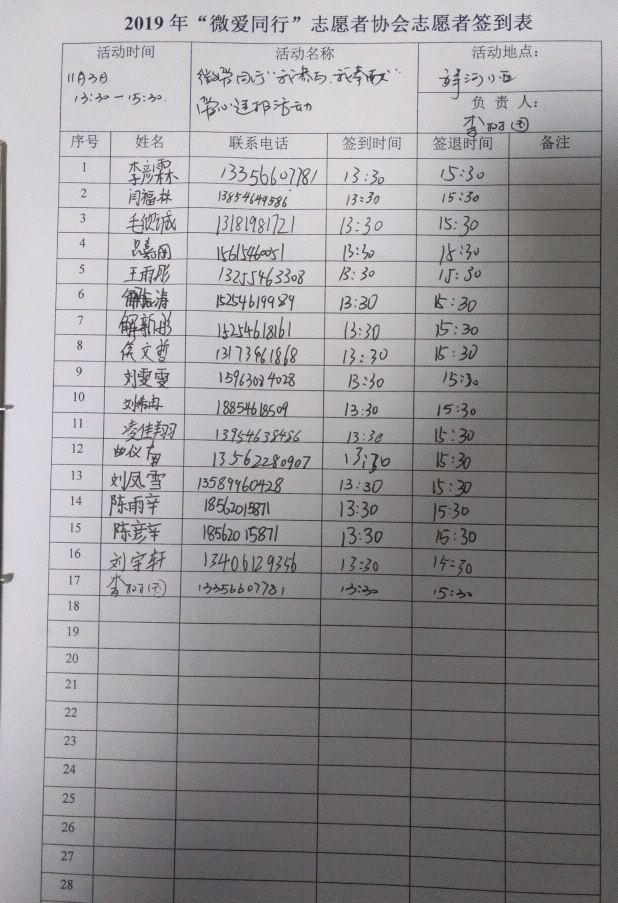 2019 年“微爱同行”志愿者协会志愿者签到表
活动时间 活动名称 活动地点：
11月3日 微爱同行"我参与、我奉献"
13:30—15:30. 爱心送报活动
负 责 人：
序号 姓名 联系电话 签到时间 签退时间 备注
1 李彦霖 13356607781 13:30 15:30
2 闫福林 13854649586 13:30 15:30
3 毛倾诚 13181981721 13:30 15:30
4 15615460051 13:30 15:30
5 王雨彤 13255463308 13:30 15:30
6 15254619989 13:30 15:30
7 解新彤 15254618161 13:30 15:30
8 侯文哲 13173961868 13:30 15:30
9 刘雯雯 15963024028 13:30 15:30
10 18854618509 13:30 15:30
11 凌佳翔 13954638486 13:30 15:30
12 13562280907 13:30 15:30
13 刘凤雪 13589460428 13:30 15:30
14 陈雨辛 18562015871 13:30 15:30
15 陈彦辛 18562015871 13:30 15:30
16 刘宇轩 13406129356 13:30 15:30
17 13356607781 13:30 15:30
18
19
20
21
22
23
24
25
26
27
28